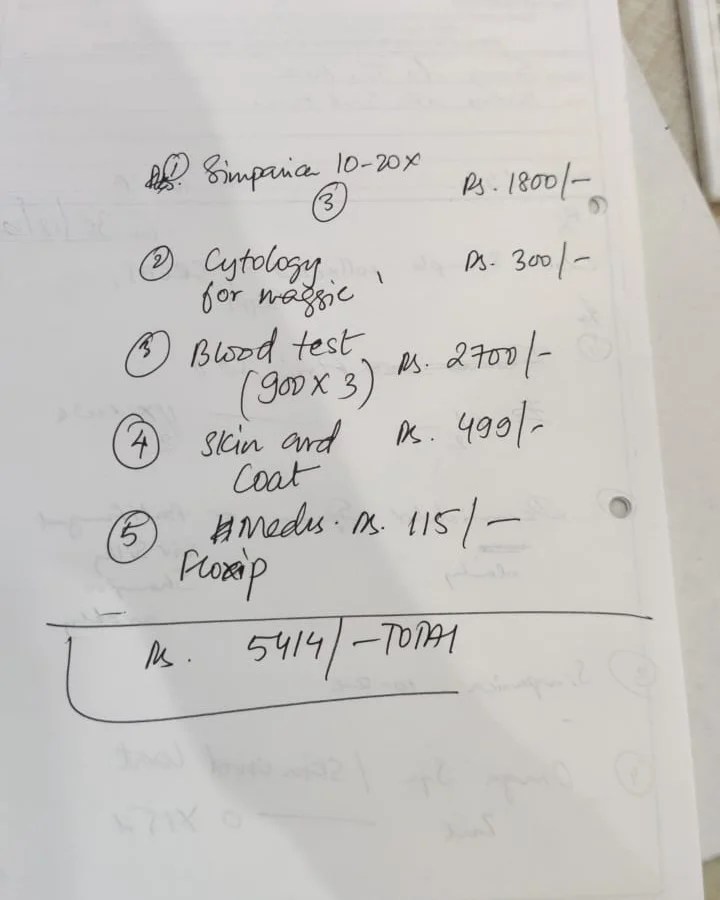 ① Simparica 10-20x Rs. 1800/-
③
② Cytology Rs. 300/-
for maggie
③ Blood test Rs. 2700/-
(900 x 3)
④ Skin and Rs. 499/-
Coat
⑤ Meds. Rs. 115/-
Floxip
Rs. 5414/- TOTAL